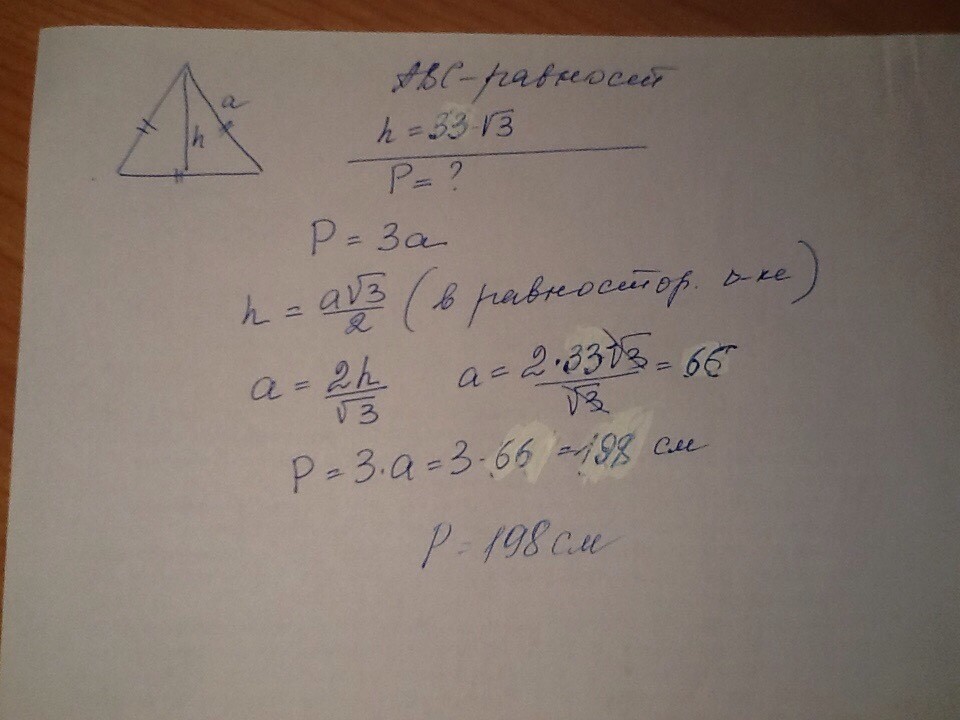 a
h
ABC-равност
h = 33·√3
P = ?
P = 3a
h = a√3/2 (в равностор. ▷-ке)
a = 2h/√3 a = 2·33√3/√3 = 66
P = 3·a = 3·66 = 198 см
P = 198 см